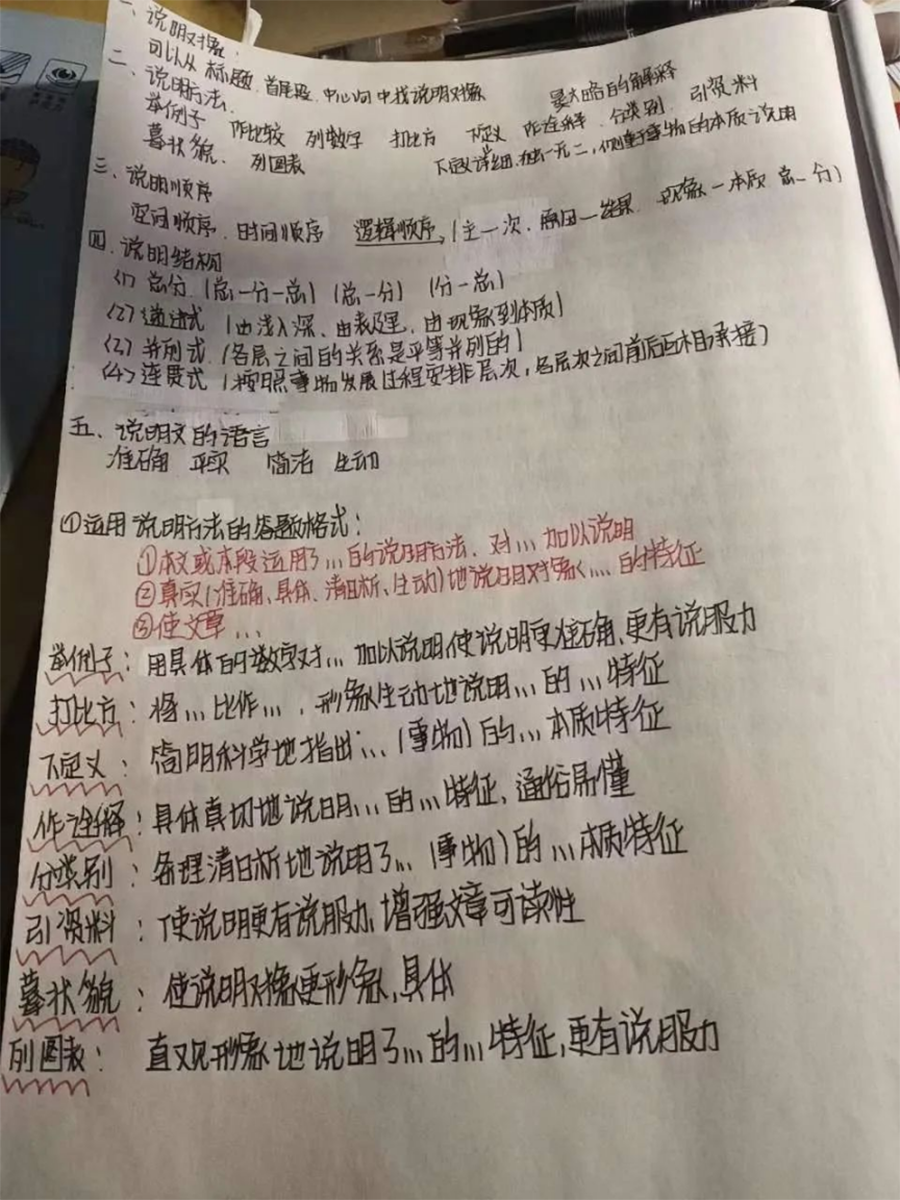 一、说明对象:
可以从标题、首尾段、中心句中找说明对象
二、说明方法:
最大略的解释
举例子 作比较 列数字 打比方 下定义 作诠释 分类别 引资料
摹状貌、列图表
下定义详细、独一无二,侧重于事物的本质说明
三、说明顺序
空间顺序、时间顺序 逻辑顺序(主一次、原因一结果 现象一本质 总一分)
四、说明结构
(1)总分(总一分一总)(总一分)(分一总)
(2)递进式(由浅入深、由表及里,由现象到本质)
(3)并列式(各层之间的关系是平等并列的)
(4)连贯式(按照事物发展过程安排层次,各层次之间前后互相承接)
五、说明文的语言
准确 平实 简洁 生动
①运用说明方法的答题格式:
①本文或本段运用了...的说明方法、对...加以说明
②真实(准确、具体、清晰、生动)地说明对象...的特征
③使文章...
举例子:用具体的数字对...加以说明,使说明更准确、更有说服力
打比方:将...比作...,形象生动地说明...的...特征
下定义:简明科学地指出...(事物)的...本质特征
作诠释:具体真切地说明...的...特征、通俗易懂
分类别:条理清晰地说明了...(事物)的...本质特征
引资料:使说明更有说服力,增强文章可读性
摹状貌:使说明对象更形象,具体
列图表:直观形象地说明了...的...特征,更有说服力